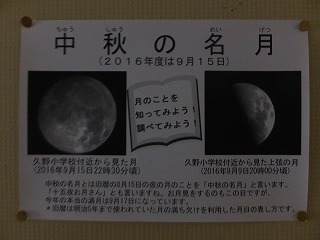 ちゅう しゅう めい げつ
中秋の名月
(2016年度は9月15日)
月のことを
知ってみよう!
調べてみよう!
久野小学校付近から見た月
(2016年9月15日22時30分頃)
久野小学校付近から見た上弦の月
(2016年9月9日20時00分頃)
中秋の名月とは旧暦の8月15日の夜の月のことを「中秋の名月」と言います。
「十五夜お月さん」とも言いますね。お月見をするのもこの日ですが、
今年の本当の満月は9月17日になっています。
*旧暦は明治5年まで使われていた月の満ち欠けを利用した月日の表し方です。